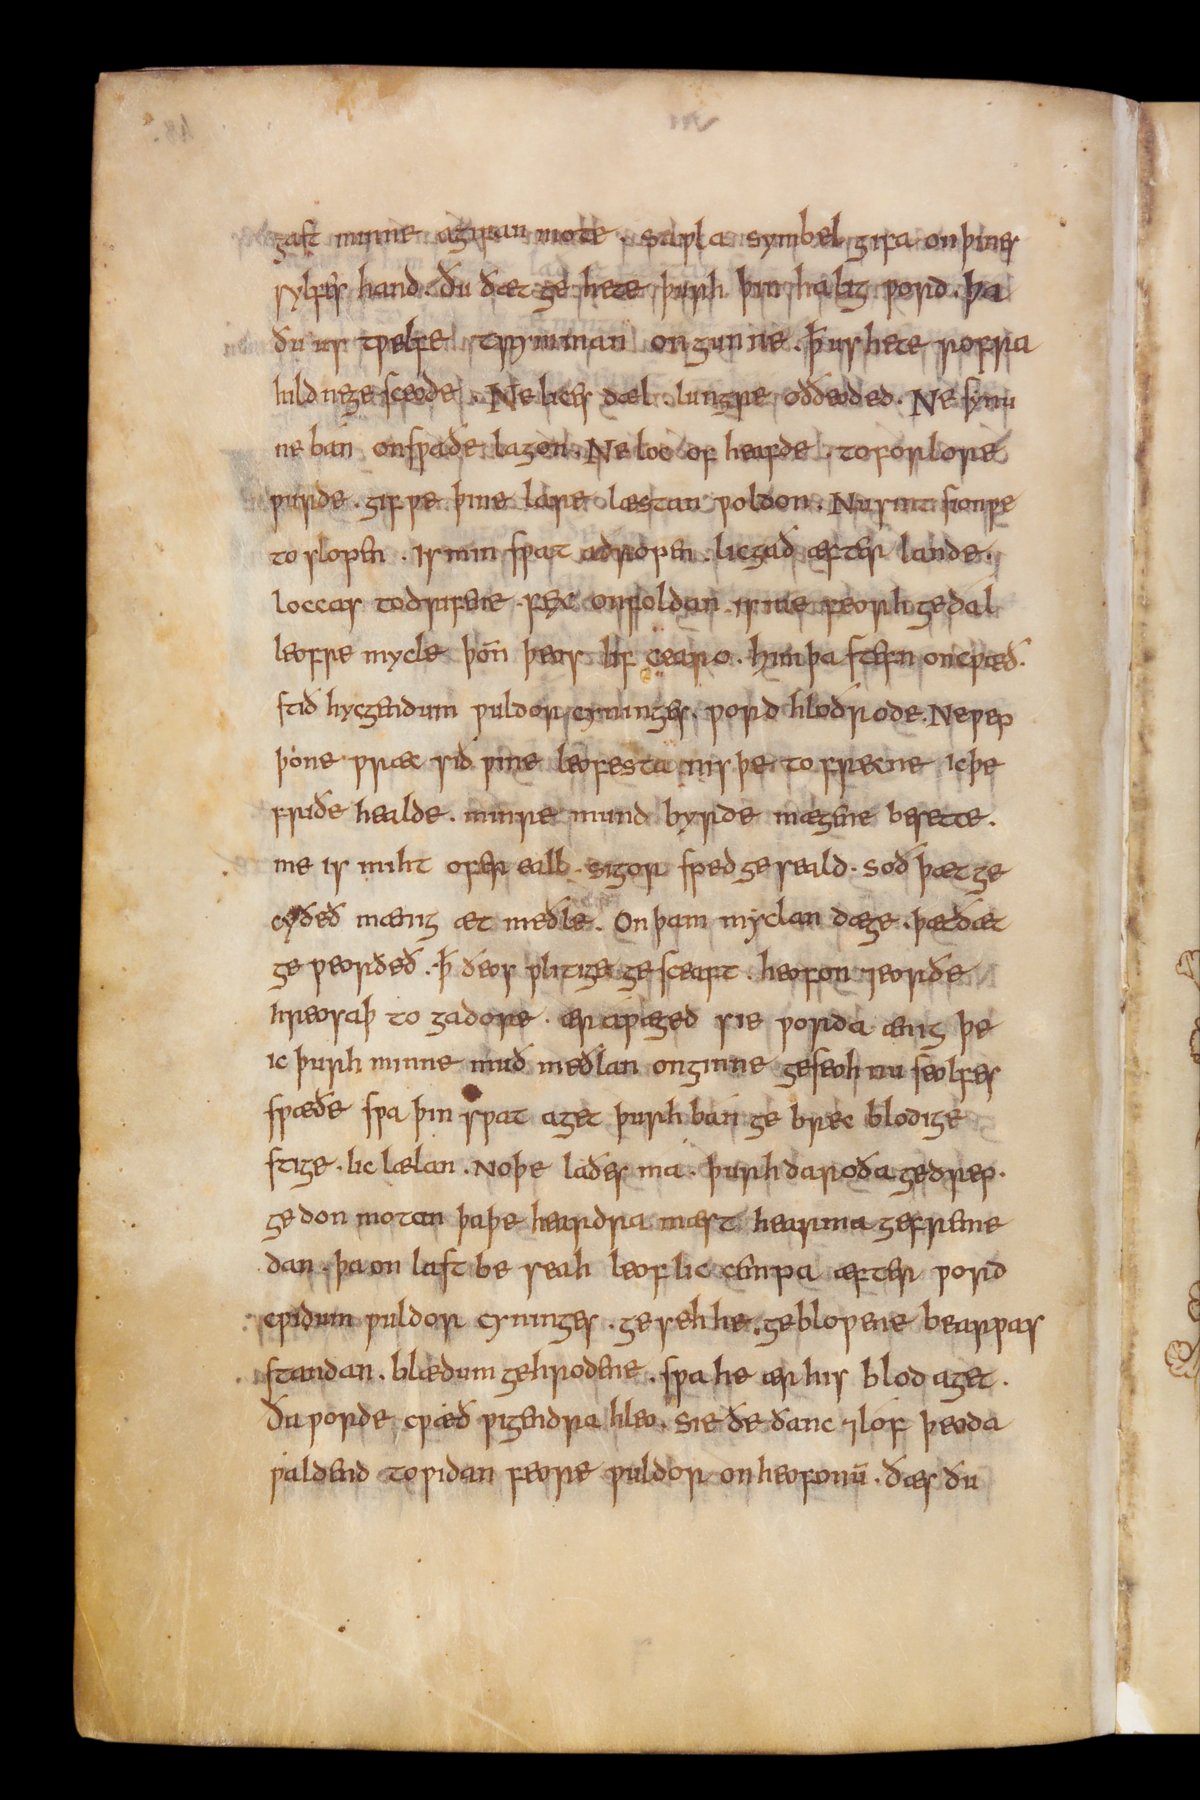 gast minne agifan mote . saƿla symbel gifa on þines
sylfes hand . ðu ðæt ge hete þurh þin halig ƿord . þa
ðu us tƿelfe trymman ongunne . ꝥ us hete rofra
hild ne ge sceode . Ne lices dæl . lungre oððeoded . Ne synu
ne ban on sƿaðe lagon . Ne loc of heafde . to forlore
ƿurde . gif ƿe þine lare læstan ƿoldon . Nu sint sionƿe
to slopen . is min sƿat adropen . licgað æfter lande .
loccas todrifene . fex on foldan . is me feorh gedal
leofre mycle þoñ þeos lif cearo . him þa stefn oncƿæð .
stið hycgendum ƿuldor cyninges . ƿord hloðrode . Ne ƿep
þone ƿræc sið ƿine leofesta nis þe to frecne ic þe
friðe healde . minre mund byrde mægene besette .
me is miht ofer eall . sigor sped ge seald . soð þæt ge
cyðeð mænig æt meðle . On þam myclan dæge . þæt ðæt
ge ƿeorðeð . ꝥ ðeos ƿlitige ge sceaft . heofon ⁊ eorðe
hreosaþ to gadore . ær aƿæged sie ƿorda ænig þe
ic þurh minne muð meðlan onginne geseoh nu seolfes
sƿæðe sƿa þin sƿat aget þurh ban ge brec blodige
stige . lic lælan . no þe laðes ma . þurh daroða gedrep .
ge don motan þa þe heardra mæst hearma gefreme
dan . þa on last be seah leof lic cempa æfter ƿord
cƿidum ƿuldor cyninges . ge seh he . gebloƿene bearƿas
standan . blædum gehrodene . sƿa he ær his blod aget .
ða ƿorde cƿæð ƿigendra hleo . sie ðe ðanc ⁊ lof þeoda
ƿaldend to ƿidan feore ƿuldor on heofonū . ðæs ðu